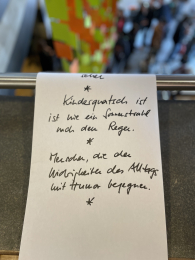 *
Kinderquatsch ist
ist wie ein Sonnenstrahl
nach dem Regen.
*
Menschen, die den
Widrigkeiten des Alltags
mit Humor begegnen.
*